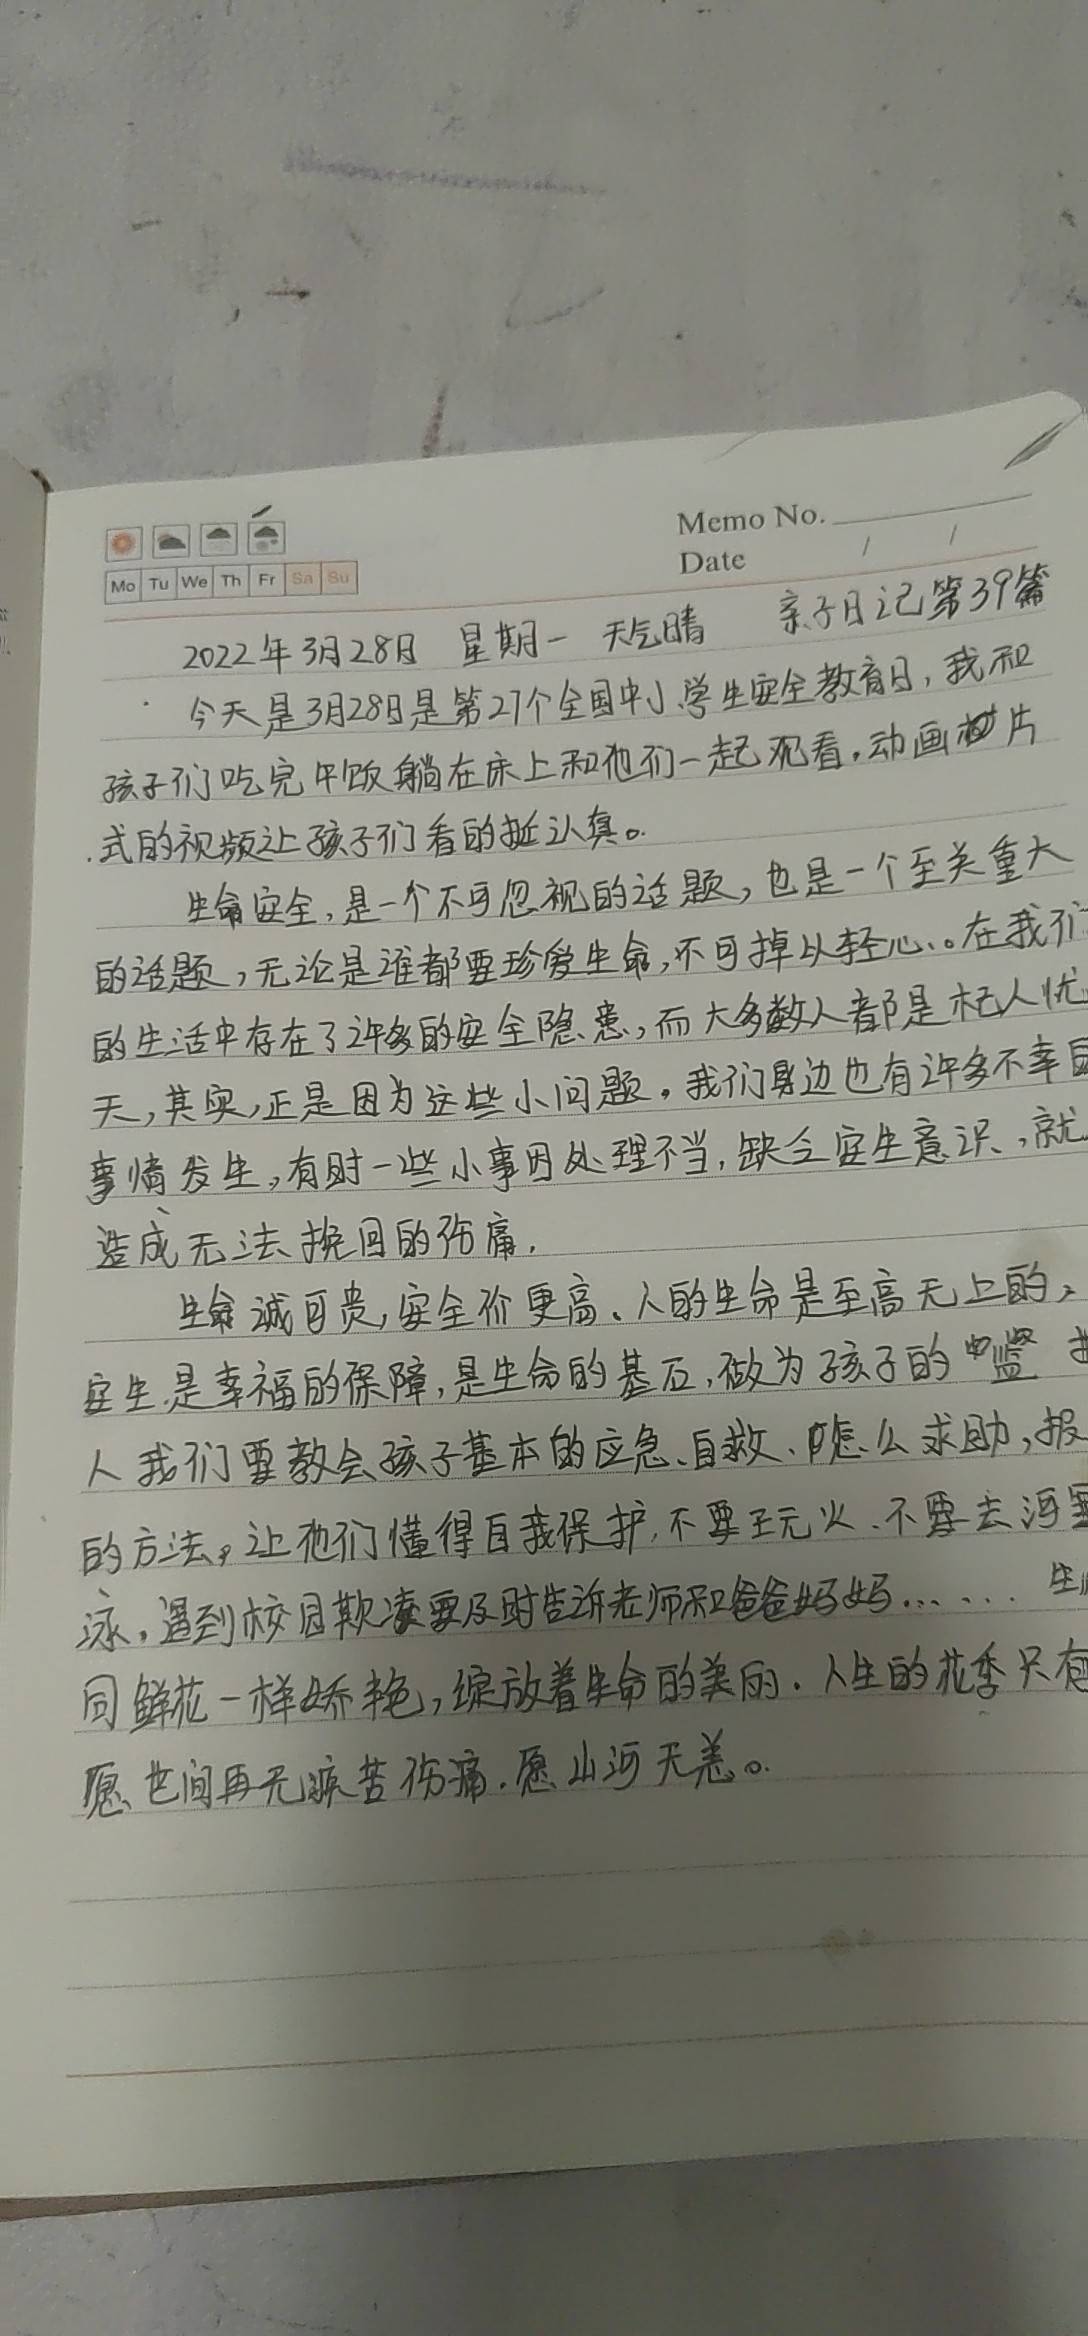 Memo No.
Date / /
Mo Tu We Th Fr Sa Su
2022年3月28日 星期一 天气晴 亲子日记第39篇
今天是3月28日是第27个全国中小学生安全教育日,我和
孩子们吃完午饭躺在床上和他们一起观看,动画片
式的视频让孩子们看的挺认真。
生命安全,是一个不可忽视的话题,也是一个至关重大
的话题,无论是谁都要珍爱生命,不可掉以轻心、。在我们
的生活中存在了许多的安全隐患,而大多数人都是杞人忧
天,其实,正是因为这些小问题,我们身边也有许多不幸
事情发生,有时一些小事因处理不当,缺乏安生意识,就
造成无法挽回的伤痛,
生命诚可贵,安全价更高、人的生命是至高无上的,
安生是幸福的保障,是生命的基石,做为孩子的监
人我们要教会孩子基本的应急、自救、怎么求助,报
的方法,让他们懂得自我保护,不要玩火、不要去河里
泳,遇到校园欺凌要及时告诉老师和爸爸妈妈…… 生
同鲜花一样娇艳,绽放着生命的美丽.人生的花季只有
愿世间再无疾苦伤痛.愿山河无恙。